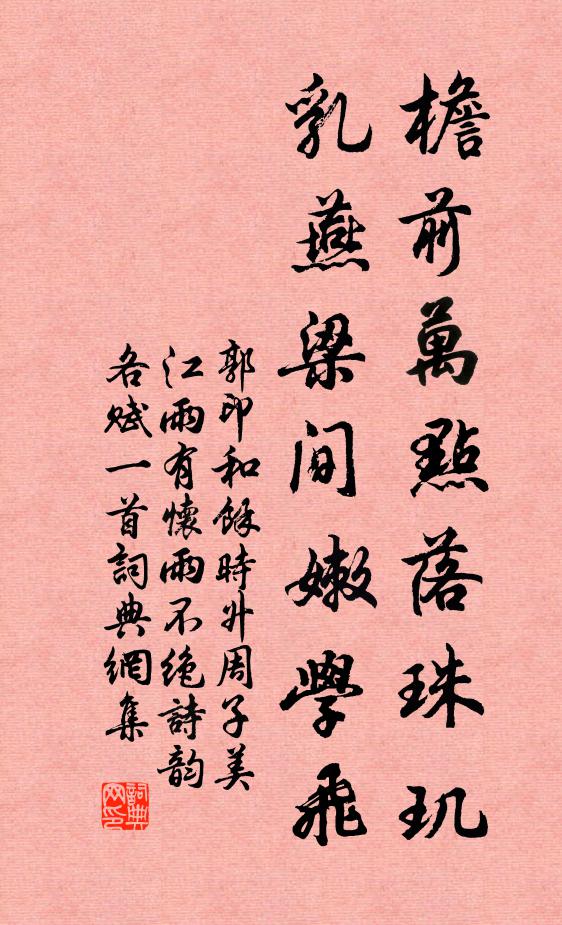 檐前萬點落珠玑
乳燕梁間嫩學飛
郭印和餘時升周子美
江雨有懷雨不絶詩韵
各賦一首詞典網集
詞典网印